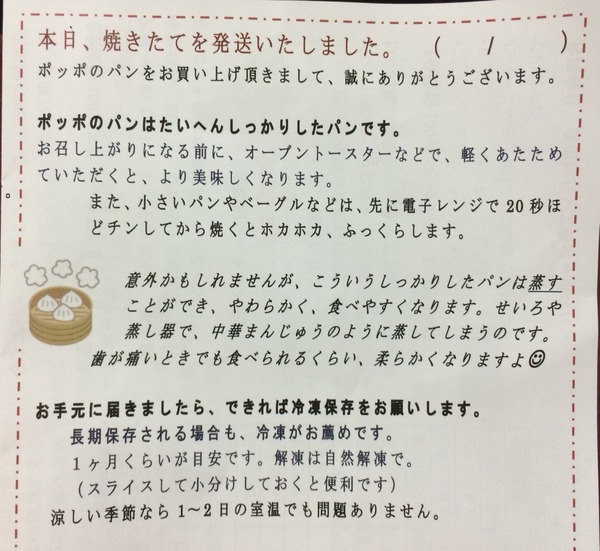 本日、焼きたてを発送いたしました。 ( / )
ポッポのパンをお買い上げ頂きまして、誠にありがとうございます。
ポッポのパンはたいへんしっかりしたパンです。
お召し上がりになる前に、オーブントースターなどで、軽くあたため
ていただくと、より美味しくなります。
また、小さいパンやベーグルなどは、先に電子レンジで20秒ほ
どチンしてから焼くとホカホカ、ふっくらします。
意外かもしれませんが、こういうしっかりしたパンは蒸す
ことができ、やわらかく、食べやすくなります。せいろや
蒸し器で、中華まんじゅうのように蒸してしまうのです。
歯が痛いときでも食べられるくらい、柔らかくなりますよ☺
お手元に届きましたら、できれば冷凍保存をお願いします。
長期保存される場合も、冷凍がお薦めです。
1ヶ月くらいが目安です。解凍は自然解凍で。
(スライスして小分けしておくと便利です)
涼しい季節なら1~2日の室温でも問題ありません。